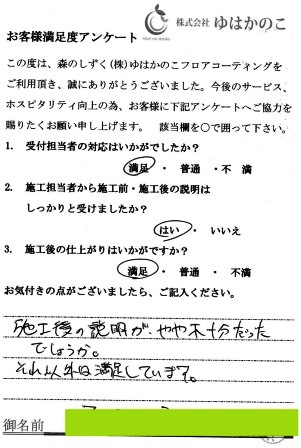 株式会社 ゆはかのこ
お客様満足度アンケート
この度は、森のしずく(株)ゆはかのこフロアコーティングを
ご利用頂き、誠にありがとうございました。今後のサービス、
ホスピタリティ向上の為、お客様に下記アンケートへご協力を
賜りたくお願い申し上げます。 該当欄を○で囲って下さい。
1. 受付担当者の対応はいかがでしたか?
満足 ・ 普通 ・ 不満
2. 施工担当者から施工前・施工後の説明は
しっかりと受けましたか?
はい ・ いいえ
3. 施工後の仕上がりはいかがですか?
満足 ・ 普通 ・ 不満
お気付きの点がございましたら、ご記入ください。
施工後の説明が、やや不十分だった
でしょうか。
それ以外は満足しています。
御名前